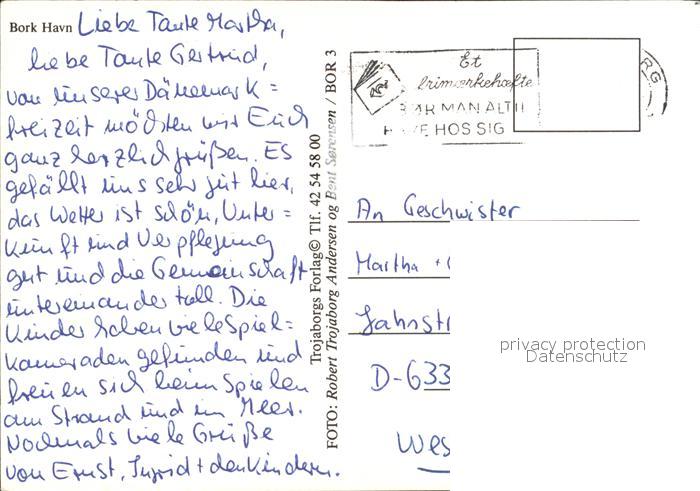 Bork Havn
Liebe Tante Martha,
liebe Tante Gertrud,
von unserer Dänemark=
freizeit möchten wir Euch
ganz herzlich grüßen. Es
gefällt uns sehr gut hier,
das Wetter ist schön, Unter=
kunft und Verpflegung
gut und die Gemeinschaft
untereinander toll. Die
Kinder haben viele Spiel=
kameraden gefunden und
freuen sich beim Spielen
am Strand und im Meer.
Nochmals viele Grüße
von Ernst, Ingrid + den Kindern.
Trojaborgs Forlag© Tlf. 42 54 58 00
FOTO: Robert Trojaborg Andersen og Bent Sørensen / BOR 3
Et
frimærkehæfte
BØR MAN ALTID
HAVE HOS SIG
RG
An Geschwister
Martha +
Jahnstr
D-633
Wes
privacy protection
Datenschutz